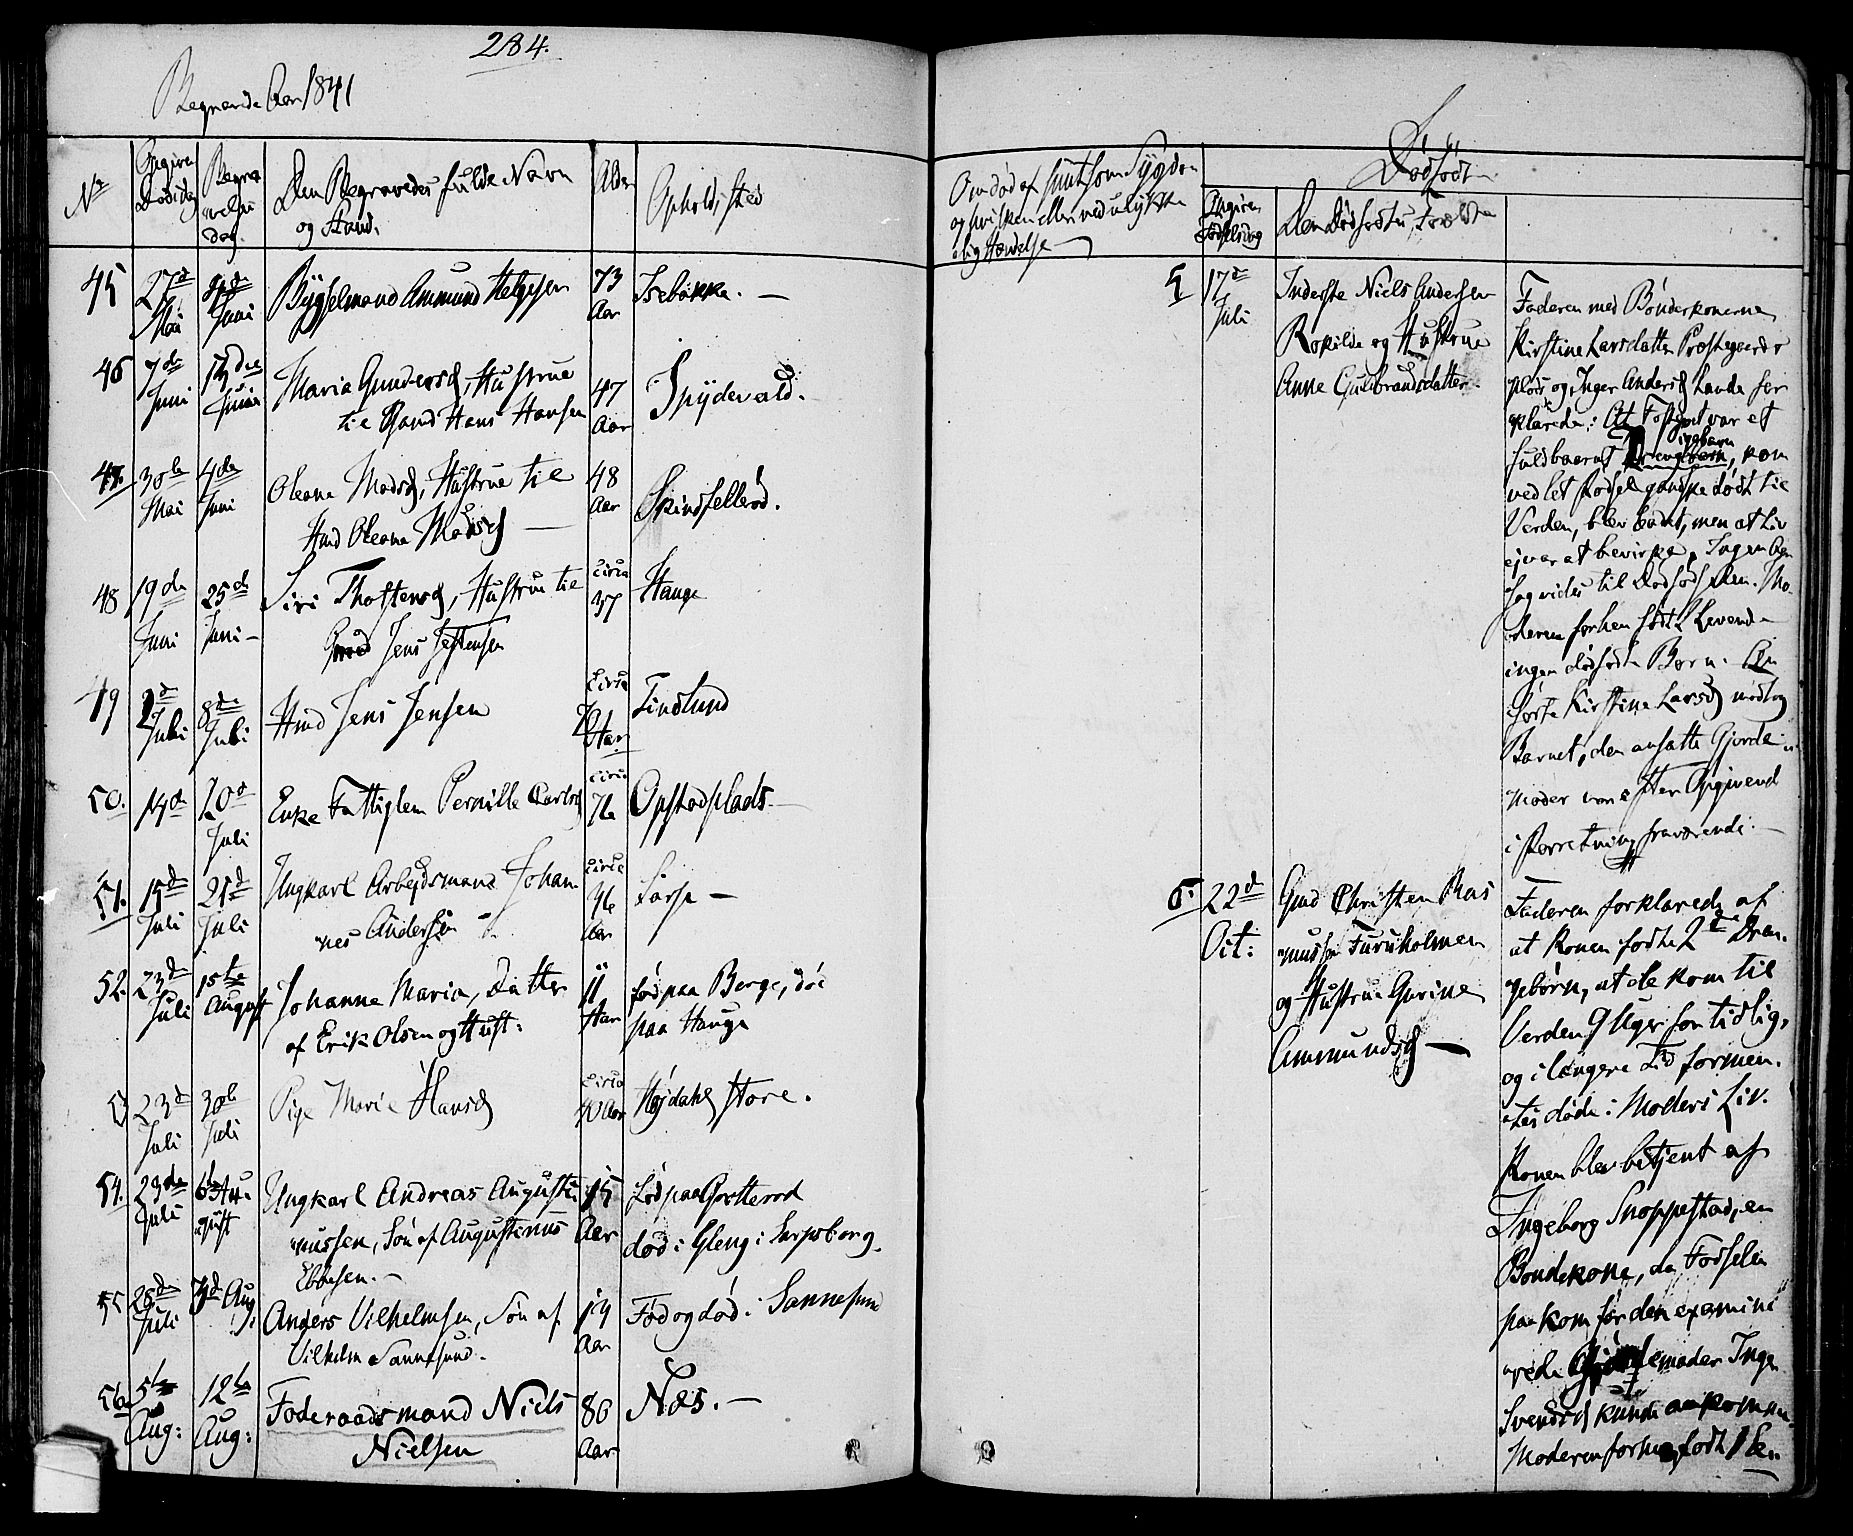 284.
Begravede Aar 1841
No
Angiven Dødsdag
Begravelsesdag.
Den Begravedes fulde Navn
og Stand.
Alder
Opholdssted
45 27d Mai 4de Juni Bygselmand Ammund Helgesen 73 Aar Isebakke. —
46 7de Juni 13de Juni Maria Gundersd, Hustrue
til Gaard Hans Hansen 47 Aar Spydevold.
47. 30te Mai 4de Juni Oleana Madsd, Hustrue til
Hmd Oleana Madsd — 48 Aar Skindfellerød.
48 19de Juni 25de Juni — Siri Thostensd, Hustrue til
Gmd Jens Jensen circa 37 Hauge
49 2d Juli 8de Juli Hmd Jens Jensen circa Aar Tindlund
50. 14d 20d Juli Enke Fattiglem Pernille Carlsd circa 76 Opstadplads —
51. 15d Juli 21d Juli Ungkarl Arbejdsmand Johan
"nes Andersen — circa 46 Aar
52. 23d Juli 15te August Johanna Maria, Datter
af Erik Olsen og Hust: 11 Aar fød paa Berge, død
paa Hauge
53 23d Juli 30te Juli Pige Marie Hansd circa 40 Aar Højdahl store.
54. 23de Juli 6te August Ungkarl Andreas Augusti
"nussen, Søn af Augustinus
Ebbesen. — 15 Aar Fød paa
død i Gleng i Sarpsborg.
55 26de Juli 3d Aug. Anders Vilhelmsen, Søn af
Vilhelm Sannesund. 14 Aar Fød og død i Sannesund
56 5te Aug: 12te Aug: Føderaadsmand Niels
Nielsen 80 Aar Næs. —
Om død af smitsom Sygdom
og hvilken eller ved ulykke
-lig Hændelse —
Dødfødte
Angiven Fødselsdag
Den Dødfødtes Forældre
5 17de Juli
Inderste Niels Andersen
Rokilde og Hustrue
Anne Gulbrandsdatter.
Faderen med Bønderkonerne
Kirstine Larsdatter Præstegaards
plads og Inger Andersd Lande for
"klarede: At Fosteret var et
fuldbaaret Pigebarn, kom
ved let Fødsel ganske dødt til
Verden, blev badet, men at Liv
ej var at bevirke. Ingen Aar
sag vides til Dødfødselen. Mo-
deren forhen født 2 Levende
ingen dødfødte Børn. An
førte Kirstine Larsd modtog
Barnet, den ansatte Gjorde-
moder var efter Opgivende
i Forretning fraværende. —
6. 22d Oct:
Gmd Christen Ras
"mussen Furuholmen
og Hustrue Gurine
Ammundsd —
Faderen forklarede af
at Konen fødte 2de Dren-
gebørn, at de kom til
Verden 9 Uger for tidlig,
og i længere Tid formen-
tes døde i Moders Liv.
Konen blev betjent af
Ingeborg Snoppestad, en
Bondekone, da Fødselen
paakom før den examine
"rede Gjordemoder Inger
Svendsd kunde ankomme.
Moderen forhen født 1 le-